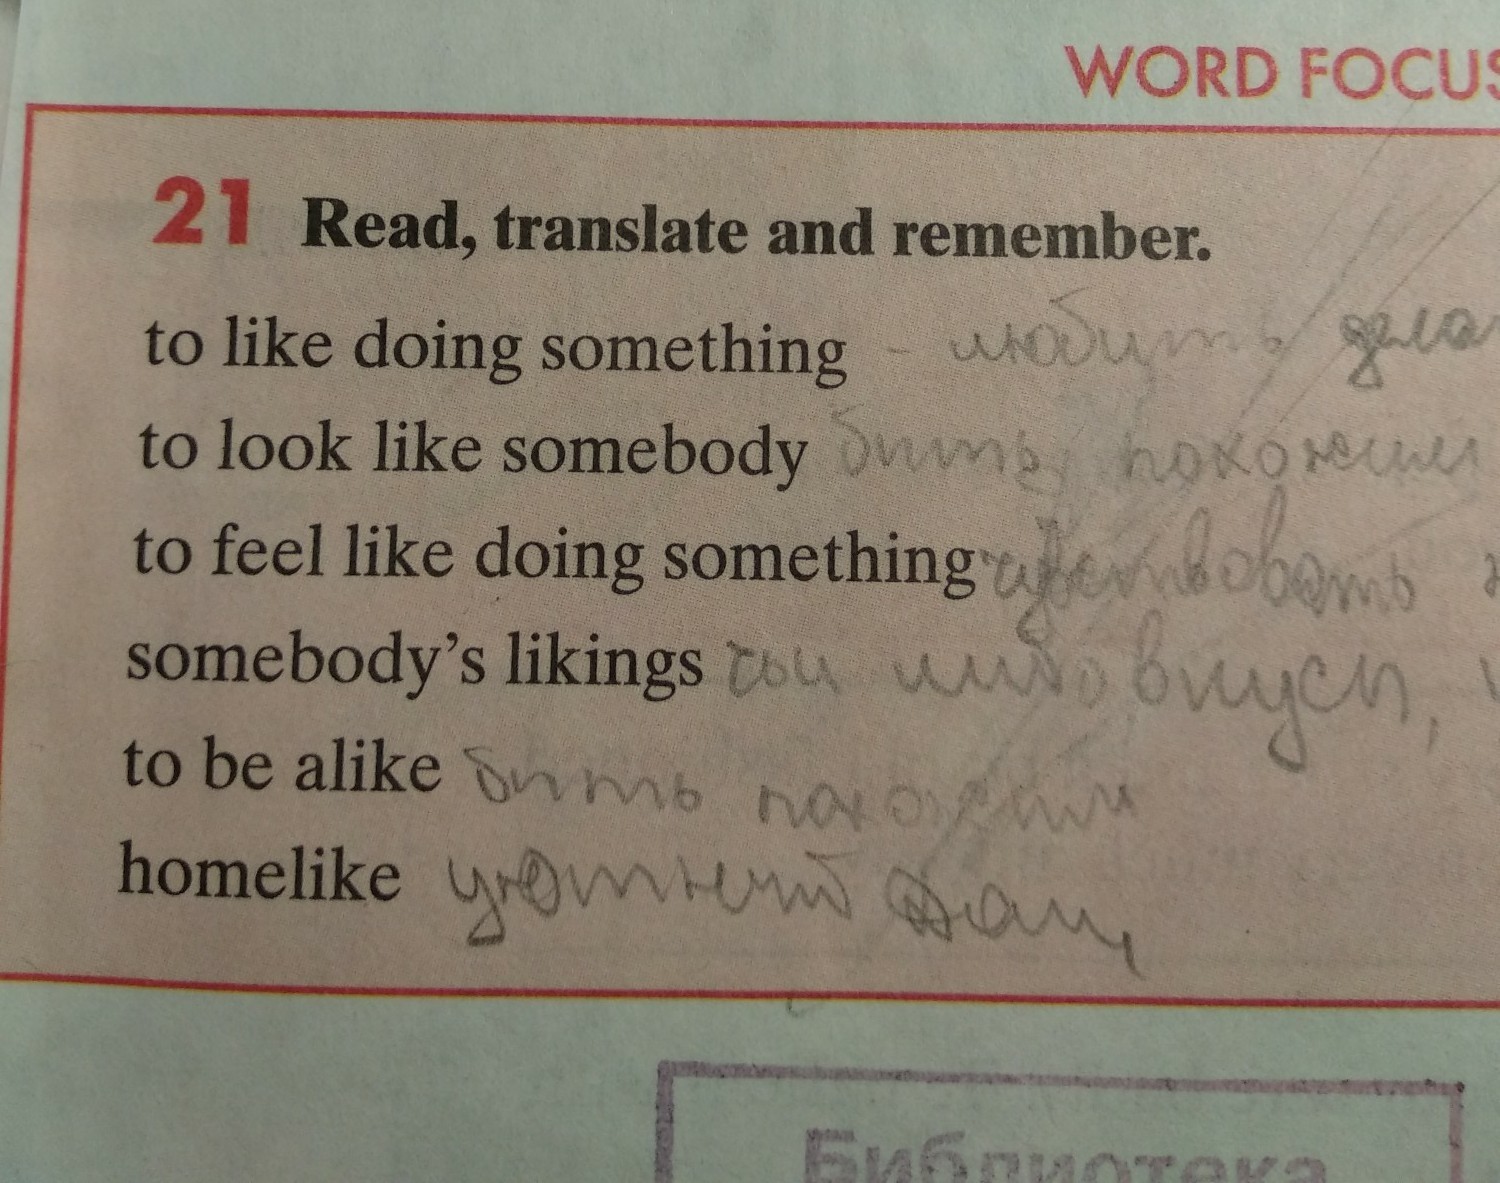 WORD FOCUS
21 Read, translate and remember.
to like doing something - любить дела
to look like somebody быть похожим
to feel like doing something чувствовать
somebody's likings чьи либо вкусы,
to be alike быть похожим
homelike уютный
Библиотека